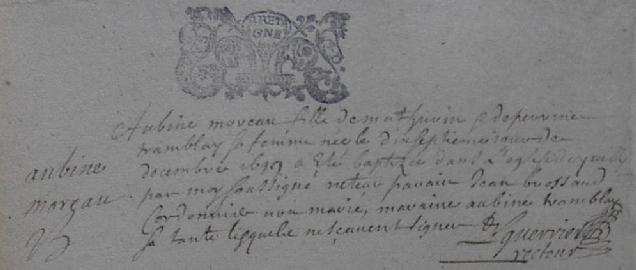 BRETA
GNE
Aubine moreau fille de mathurin & de perrine
tramblay sa femme née le dixseptieme jour de
decembre a Eté baptizée dans L'eglise
par moy soussigné recteur parain Jean brossaud
Cordonnier non marié, maraine aubine tramblay
sa tante lesquels ne sçavent signer
aubine
moreau
Guerrier
recteur